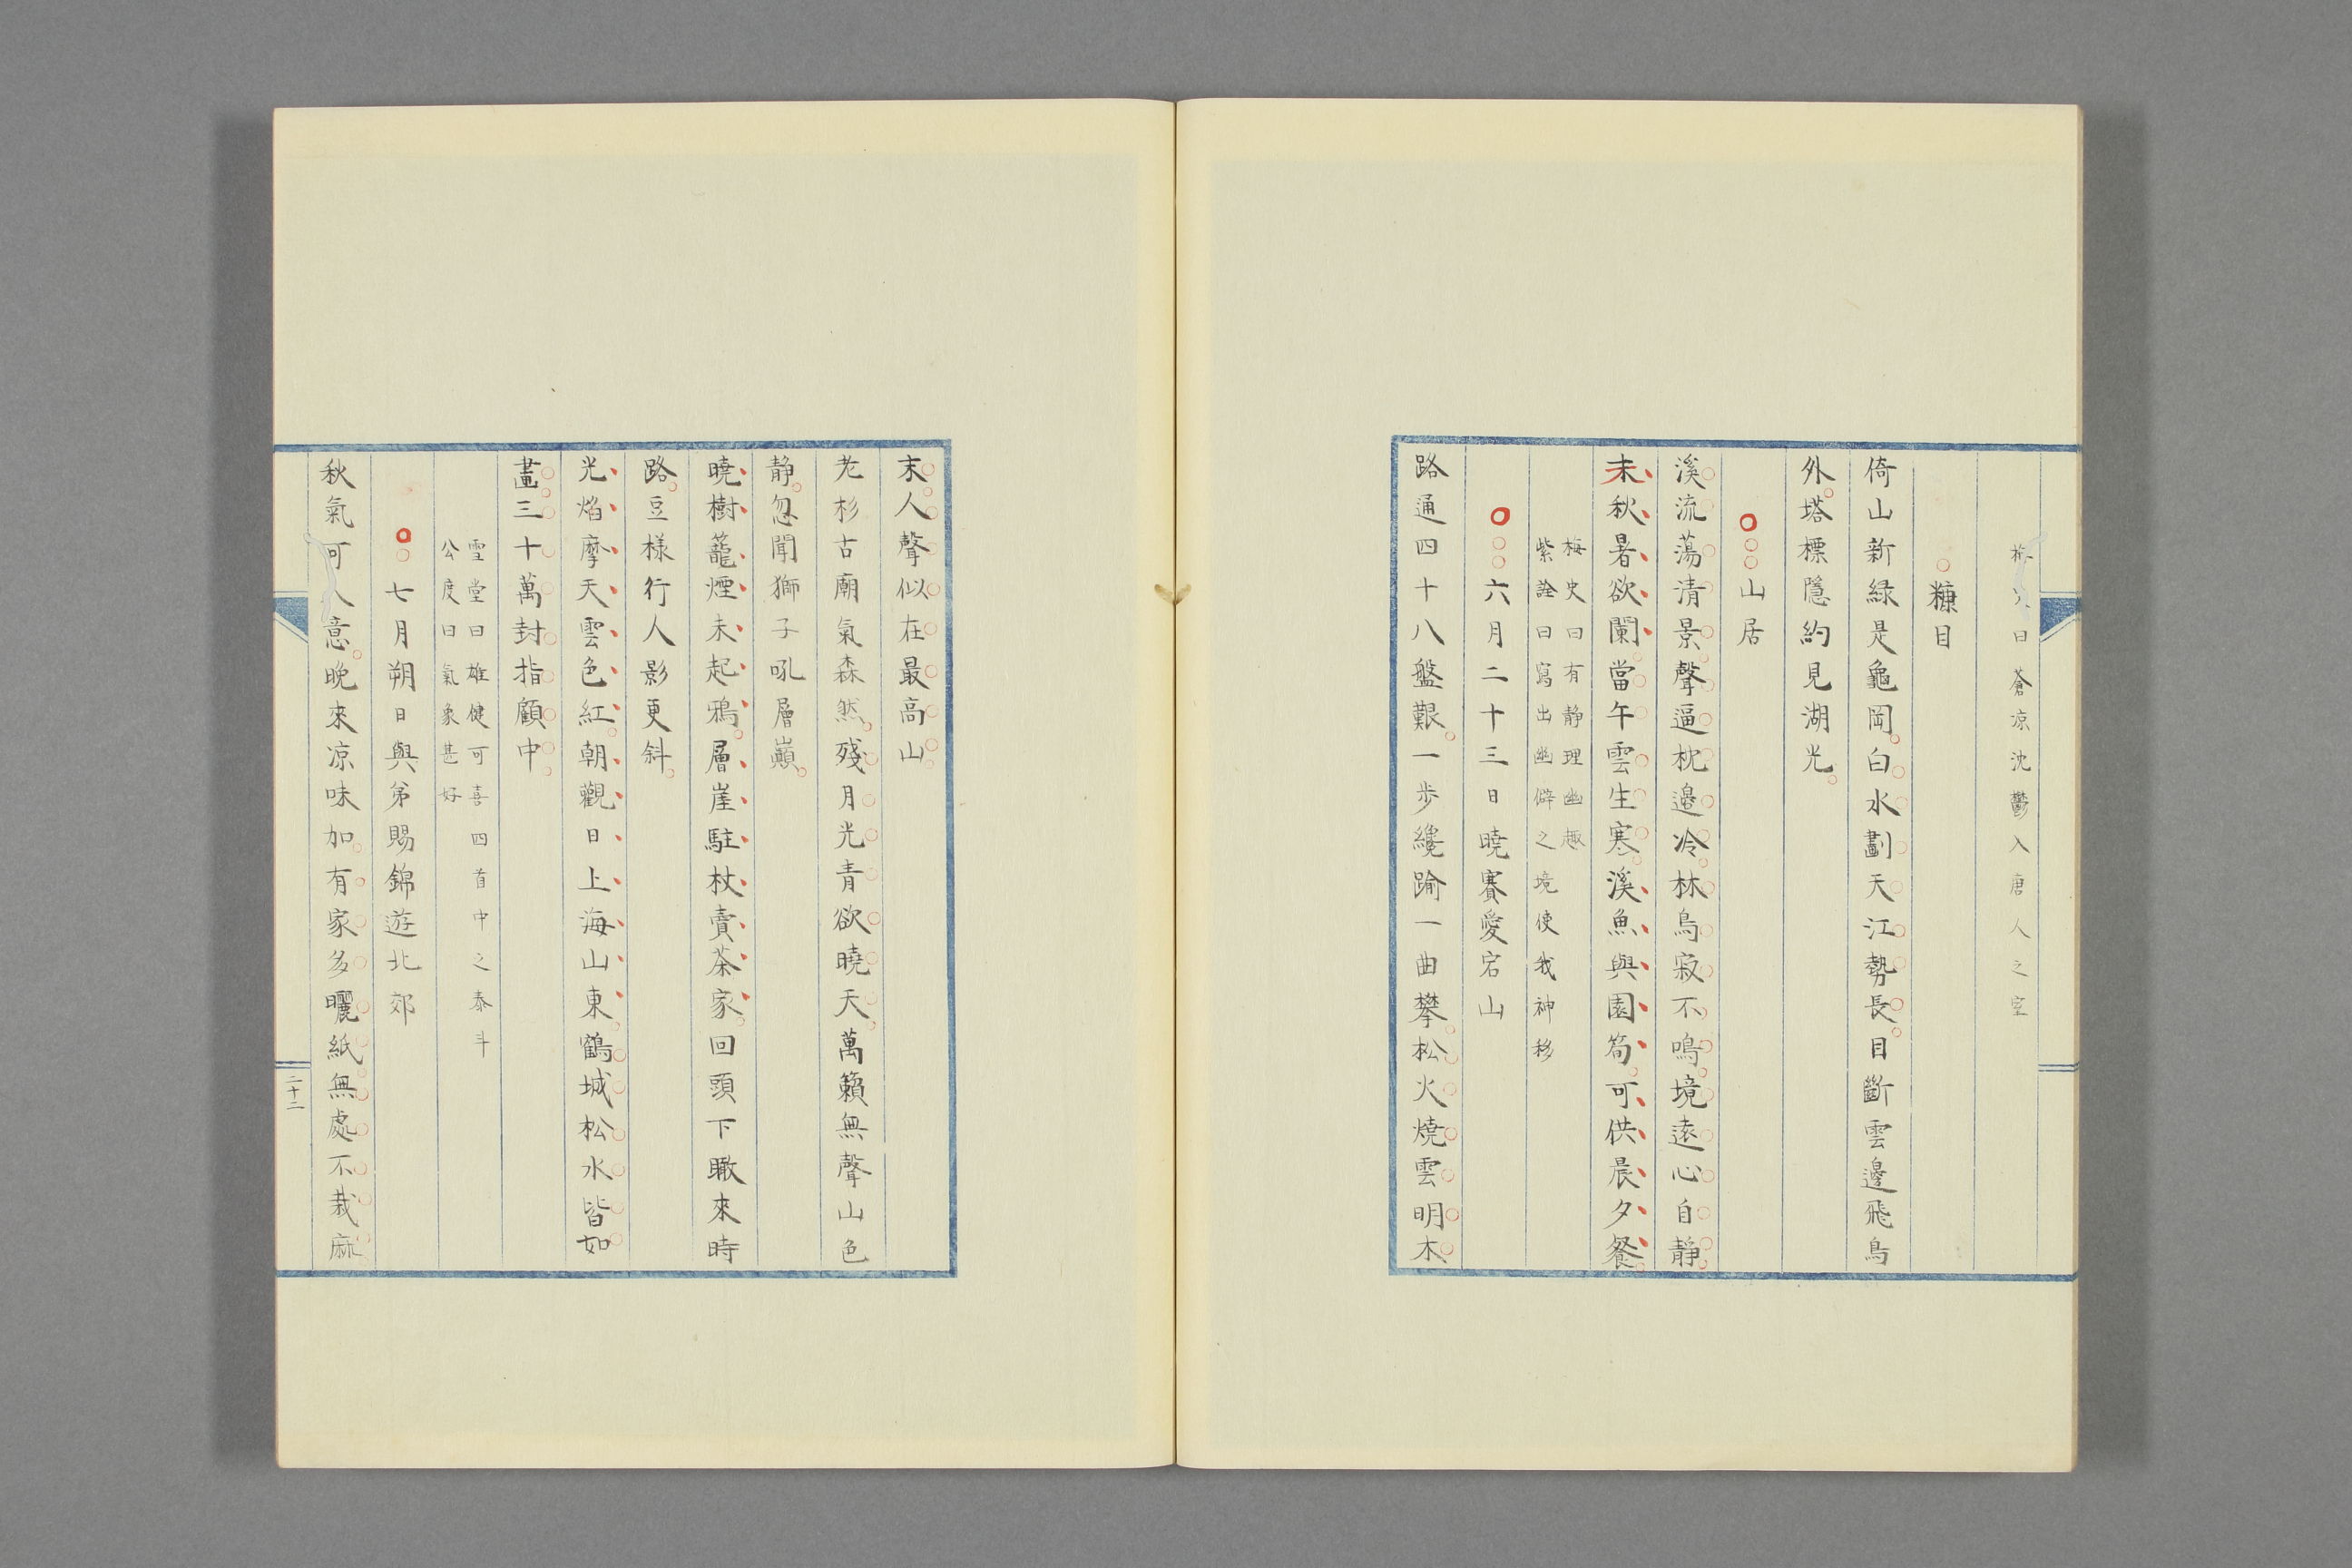 梅史曰蒼凉沈鬱入唐人之室
糠目
倚山新緑是龜岡白水劃天江勢長目斷雲邊飛鳥
外塔標隱約見湖光
山居
溪流蕩清景聲逼枕邊冷林烏寂不鳴境遠心自静
未秋暑欲闌當午雲生寒溪魚與園筍可供晨夕餐
梅史曰有静理幽趣
紫詮曰寫出幽僻之境使我神移
六月二十三日曉賽愛宕山
路通四十八盤艱一步纔踰一曲攀松火燒雲明木
末人聲似在最高山
老杉古廟氣森然殘月光青欲曉天萬籟無聲山色
静忽聞獅子吼層巔
曉樹籠煙未起鴉層崖駐杖賣茶家回頭下瞰來時
路豆樣行人影更斜
光焰摩天雲色紅朝觀日上海山東鶴城松水皆如
畫三十萬封指顧中
雪堂曰雄健可喜四首中之泰斗
公度曰氣象甚好
七月朔日與弟賜錦遊北郊
秋氣可人意晩來凉味加有家多曬紙無處不栽麻
二十二